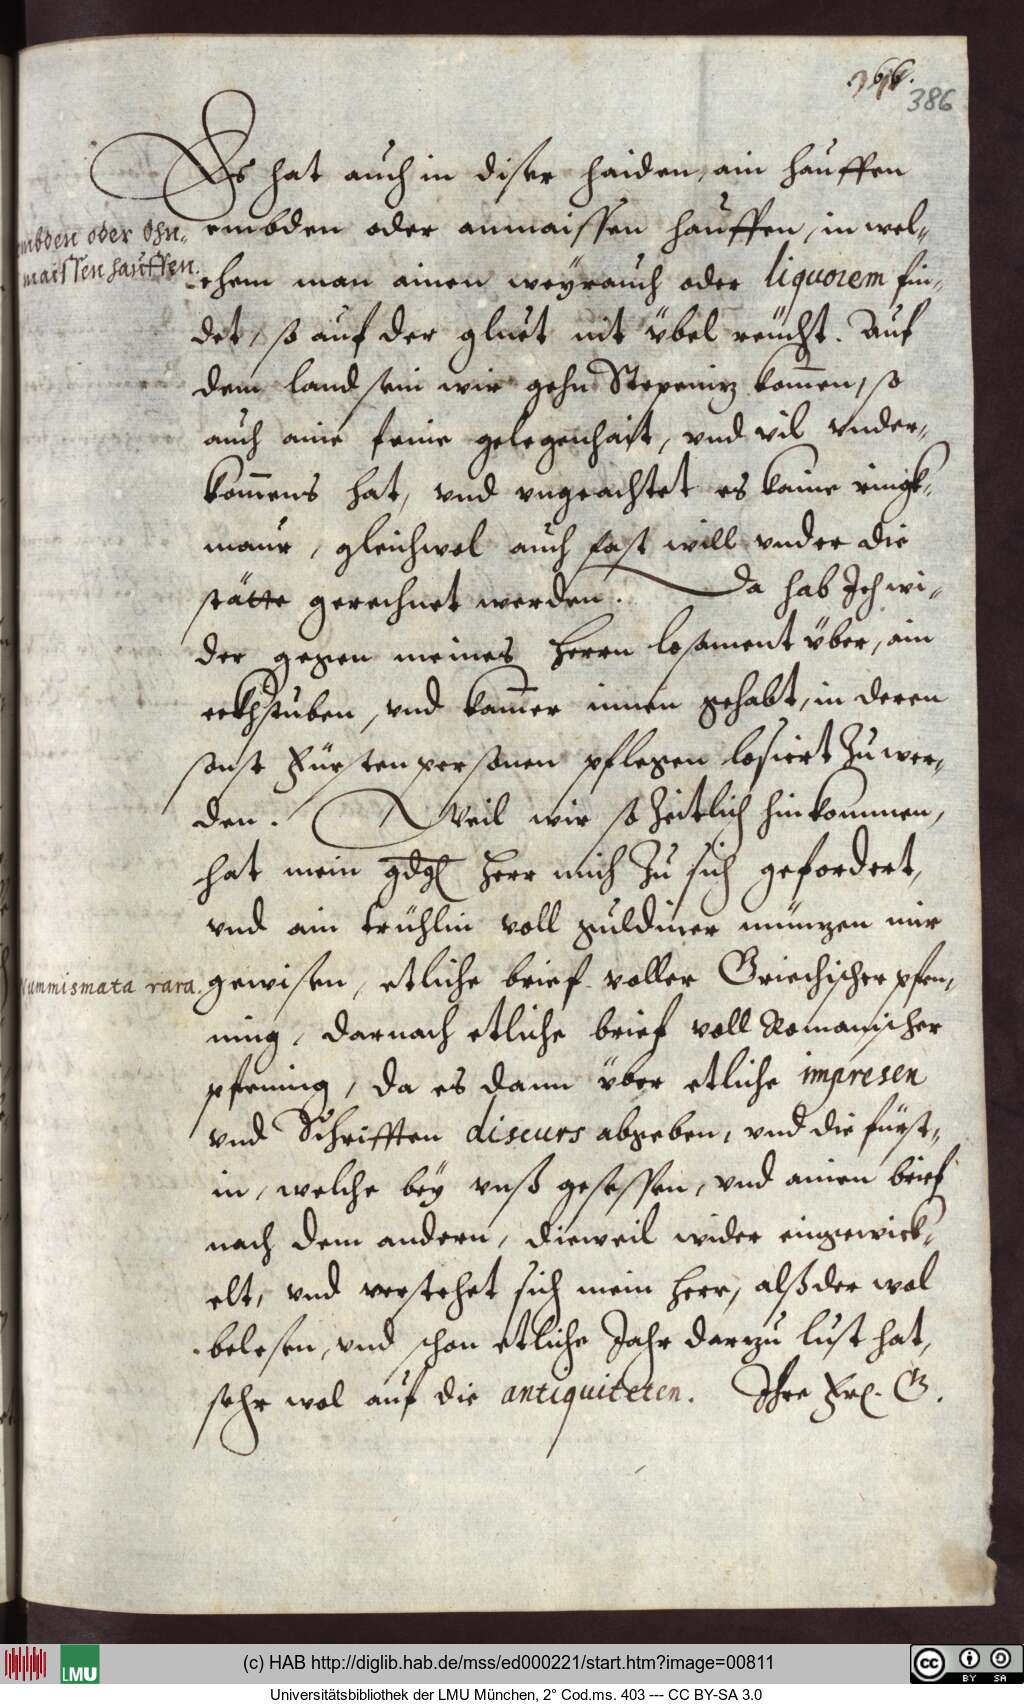 386
Es hat auch in diser haiden, ain hauffen
embden oder anmaissen hauffen, in wel-
embden oder Ohn-
maissen hauffen.
chem man ainen weyrauch oder liquorem fin-
det, so auf der gluet nit übel reücht. Auf
dem land sein wir gehn Stepeniz kom̄en, so
auch aine feine gelegenhait, vnd vil vnder-
kom̄ens hat, vnd vngeachtet es kaine ringk-
maur, gleichwol auch fast will vnder die
stätte gerechnet werden. Da hab Ich wi-
der gegen meines Herrn losament über, ain
eckhstuben, vnd kam̄er innen gehabt, in deren
sonst Fürsten personen pflegen losiert zu wer-
den. Weil wir so zeitlich hinkommen,
hat mein gdgl Herr mich zu sich gefordert,
vnd ain trühlin voll guldiner müntzen mir
Nummismata rara.
gewisen, etliche brief voller Griechischer pfen-
ning, darnach etliche brief voll Romanischer
pfening, da es dann über etliche impresen
vnd Schrifften discurs abgeben, vnd die fürst-
in, welche bey vnß gesessen, vnd ainen brief
nach dem andern, dieweil wider eingewick-
elt, vnd verstehet sich mein Herr, alß der wol
belesen, vnd schon etliche Jahr darzu lust hat,
sehr wol auf die antiquiteten. Ihre Frl. G.
LMU
(c) HAB http://diglib.hab.de/mss/ed000221/start.htm?image=00811
BY SA
Universitätsbibliothek der LMU München, 2° Cod.ms. 403 --- CC BY-SA 3.0